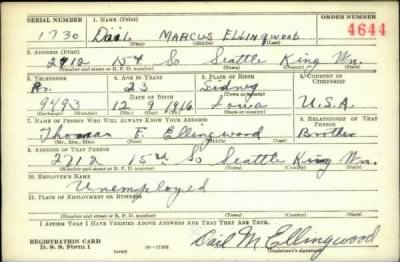 SERIAL NUMBER 1. NAME (Print) ORDER NUMBER
1730 Dail MARCUS Ellingwood 4644
(First) (Middle) (Last)
2. ADDRESS (Print)
2712 15th So Seattle King Wn.
(Number and street or R. F. D. number) (Town) (County) (State)
3. TELEPHONE 4. AGE IN YEARS 5. PLACE OF BIRTH 6. COUNTRY OF CITIZENSHIP
Pr. 23 Sidney
DATE OF BIRTH (Town or county)
9493 12 9 1916 Iowa U.S.A.
(Exchange) (Number) (Mo.) (Day) (Yr.) (State or country)
7. NAME OF PERSON WHO WILL ALWAYS KNOW YOUR ADDRESS 8. RELATIONSHIP OF THAT PERSON
Thomas F. Ellingwood Brother
(Mr., Mrs., Miss) (First) (Middle) (Last)
9. ADDRESS OF THAT PERSON
2712 15th So Seattle King Wn.
(Number and street or R. F. D. number) (Town) (County) (State)
10. EMPLOYER'S NAME
Unemployed
11. PLACE OF EMPLOYMENT OR BUSINESS
(Number and street or R. F. D. number) (Town) (County) (State)
I AFFIRM THAT I HAVE VERIFIED ABOVE ANSWERS AND THAT THEY ARE TRUE.
REGISTRATION CARD
D. S. S. Form 1 Dail M Ellingwood
(over) 16—17105 (Registrant's signature)